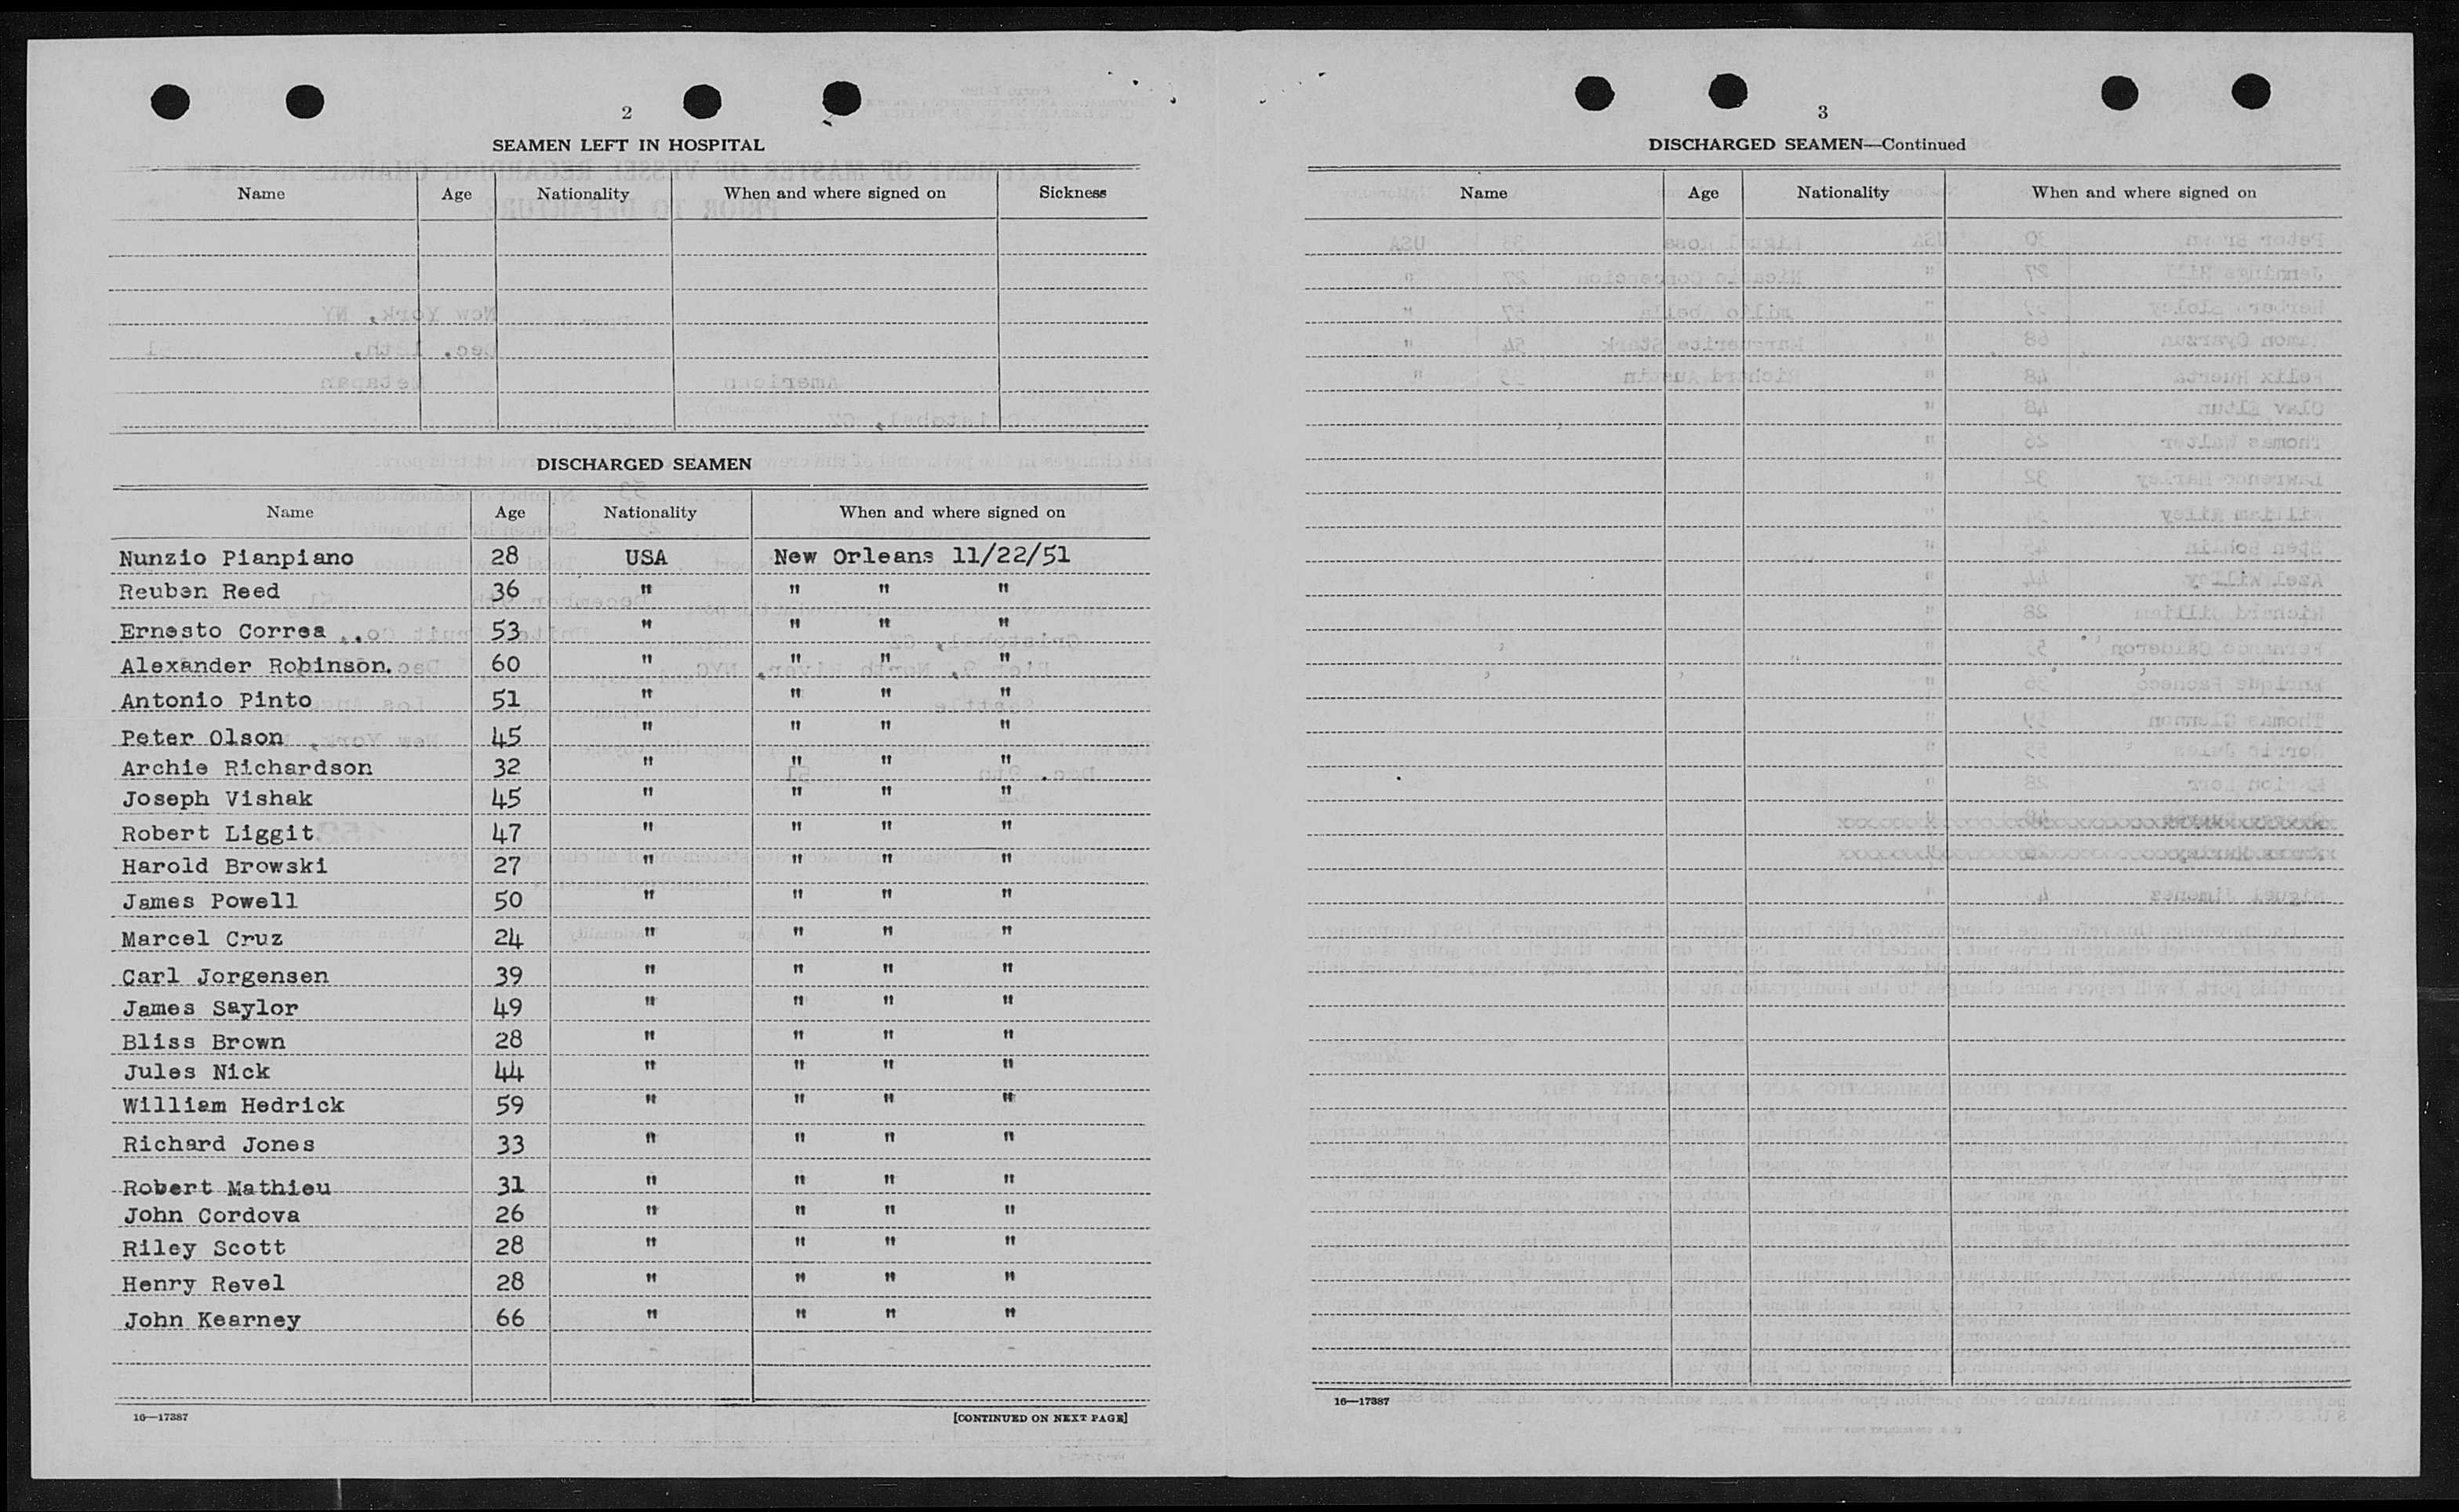 2
SEAMEN LEFT IN HOSPITAL
Name Age Nationality When and where signed on Sickness
DISCHARGED SEAMEN
Name Age Nationality When and where signed on
Nunzio Pianpiano 28 USA New Orleans 11/22/51
Reuben Reed 36 " " " "
Ernesto Correa 53 " " " "
Alexander Robinson. 60 " " " "
Antonio Pinto 51 " " " "
Peter Olson 45 " " " "
Archie Richardson 32 " " " "
Joseph Vishak 45 " " " "
Robert Liggit 47 " " " "
Harold Browski 27 " " " "
James Powell 50 " " " "
Marcel Cruz 24 " " " "
Carl Jorgensen 39 " " " "
James Saylor 49 " " " "
Bliss Brown 28 " " " "
Jules Nick 44 " " " "
William Hedrick 59 " " " "
Richard Jones 33 " " " "
Robert Mathieu 31 " " " "
John Cordova 26 " " " "
Riley Scott 28 " " " "
Henry Revel 28 " " " "
John Kearney 66 " " " "
16—17387 [CONTINUED ON NEXT PAGE]
3
DISCHARGED SEAMEN—Continued
Name Age Nationality When and where signed on
16—17387